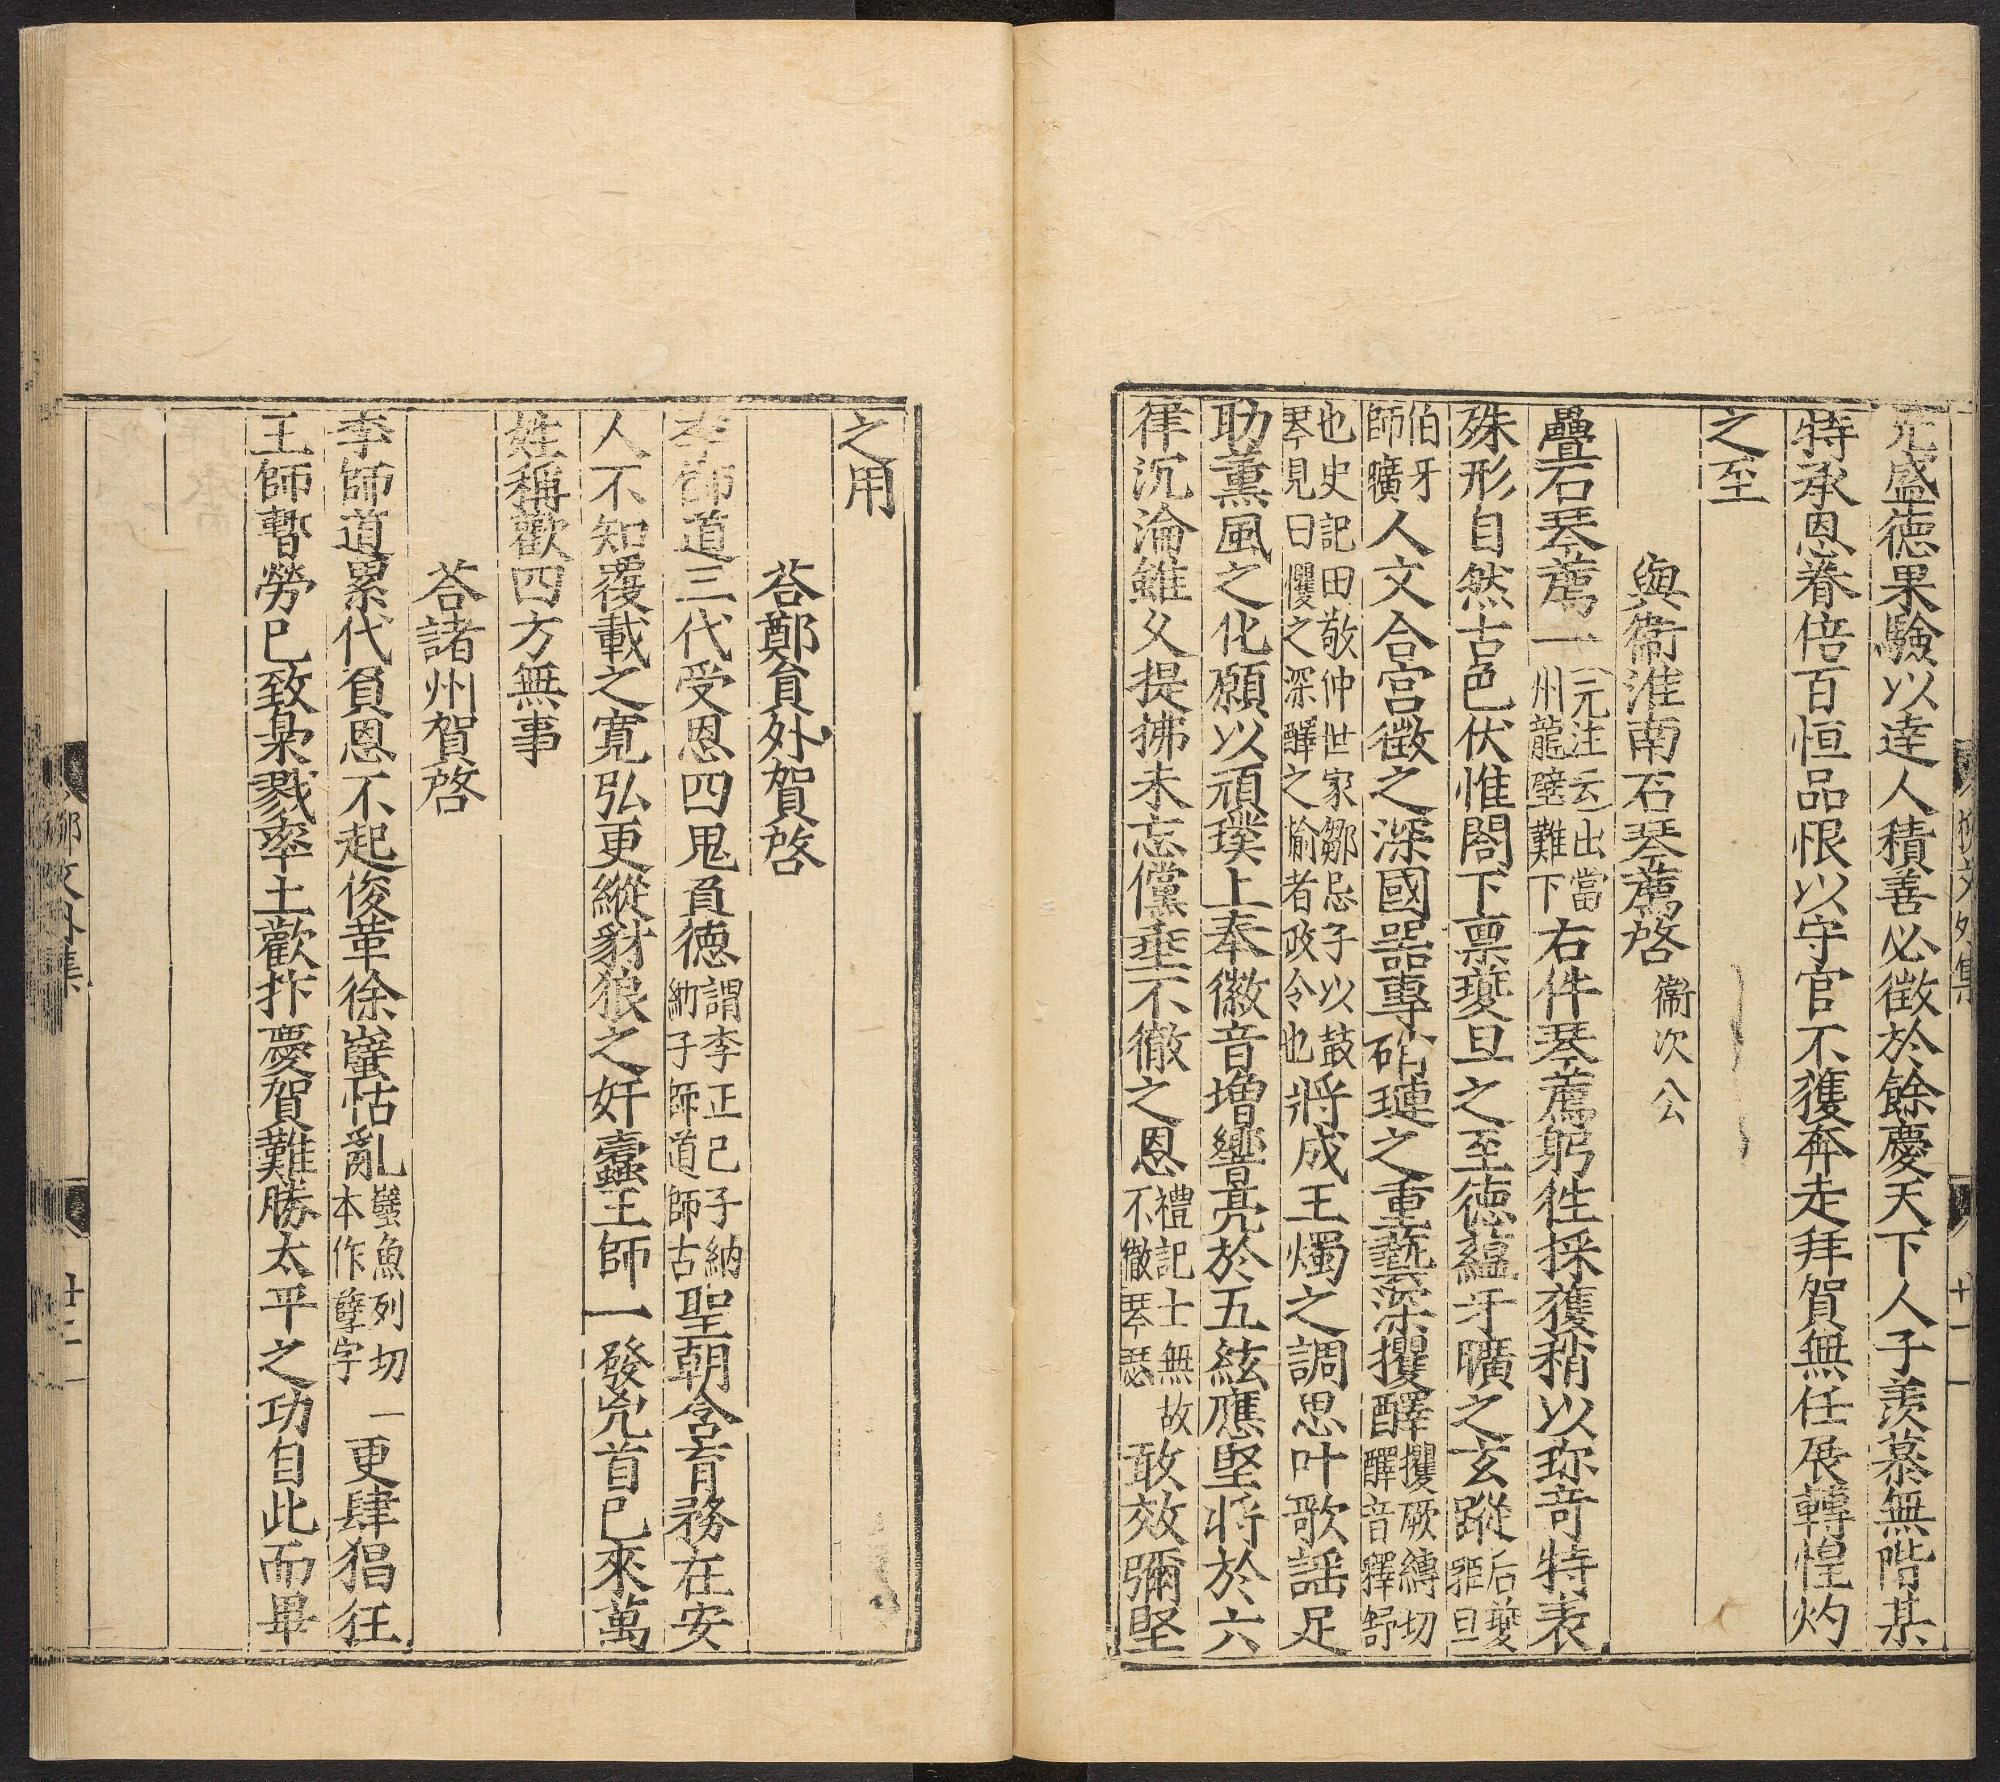 元盛徳果驗以達人積善必徵於餘慶天下人子羨慕無階某
特承恩眷倍百恒品恨以守官不獲奔走拜賀無任展轉惶灼
之至
與衞淮南石琴薦啓 衞次公
疊石琴薦一 元注云出當州龍璧難下 右件琴薦躬徃採獲稍以珎竒特表
殊形自然古色伏惟閤下禀夔旦之至徳藴牙曠之玄蹤 后夔師旦
伯牙師曠 人文合宫徵之深國噐專硝璉之重藝深攫醳 攫厥縳切醳音釋舒
也史記田敬仲世家鄒忌子以鼓琴見曰攫之深醳之愉者政令也 將成玉燭之調思叶歌謡足
助薰風之化願以頑璞上奉徽音増響亮於五絃應堅將於六
律沉淪雖乆提拂未忘儻垂不徹之恩 禮記士無故不徹琴瑟 敢效彌堅
柳文外集 十一
之用
荅鄭貟外賀啓
李師道三代受恩四鬼負徳 謂李正己子納納子師道師古 聖朝含育務在安
人不知覆載之寛弘更縱豺狼之奸蠧王師一發兇首已來萬
姓稱歡四方無事
荅諸州賀啓
李師道累代負恩不起俊革徐㜸怙亂 㜸魚列切一本作孽字 更肆猖狂
王師暫勞已致梟戮率土歡抃慶賀難勝太平之功自此而畢
柳文外集 廿二